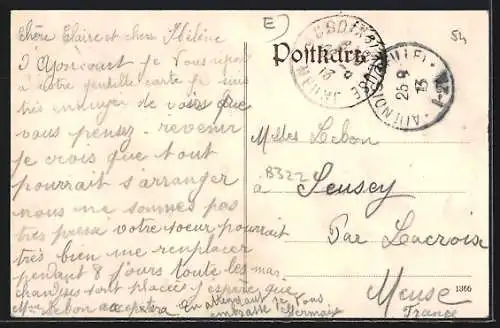 Chère Claire et chère Hélène
D'Agoncourt je vous répond
à votre gentille carte je suis
très ennuyer de voir que
vous pensez revenir
je crois que tout
pourrait s'arranger
nous ne sommes pas
très pressé votre soeur pourrait
très bien me remplacer
pendant 8 jours toute les mar
chandises sont placées j'espère que
Mme Lebon acceptera En attendant je vous
embrasse Germain
E)
54
Postkarte
25 9 13
Melles Lebon
B3224
à Seusey
Par Lacroix
1866
Meuse
France